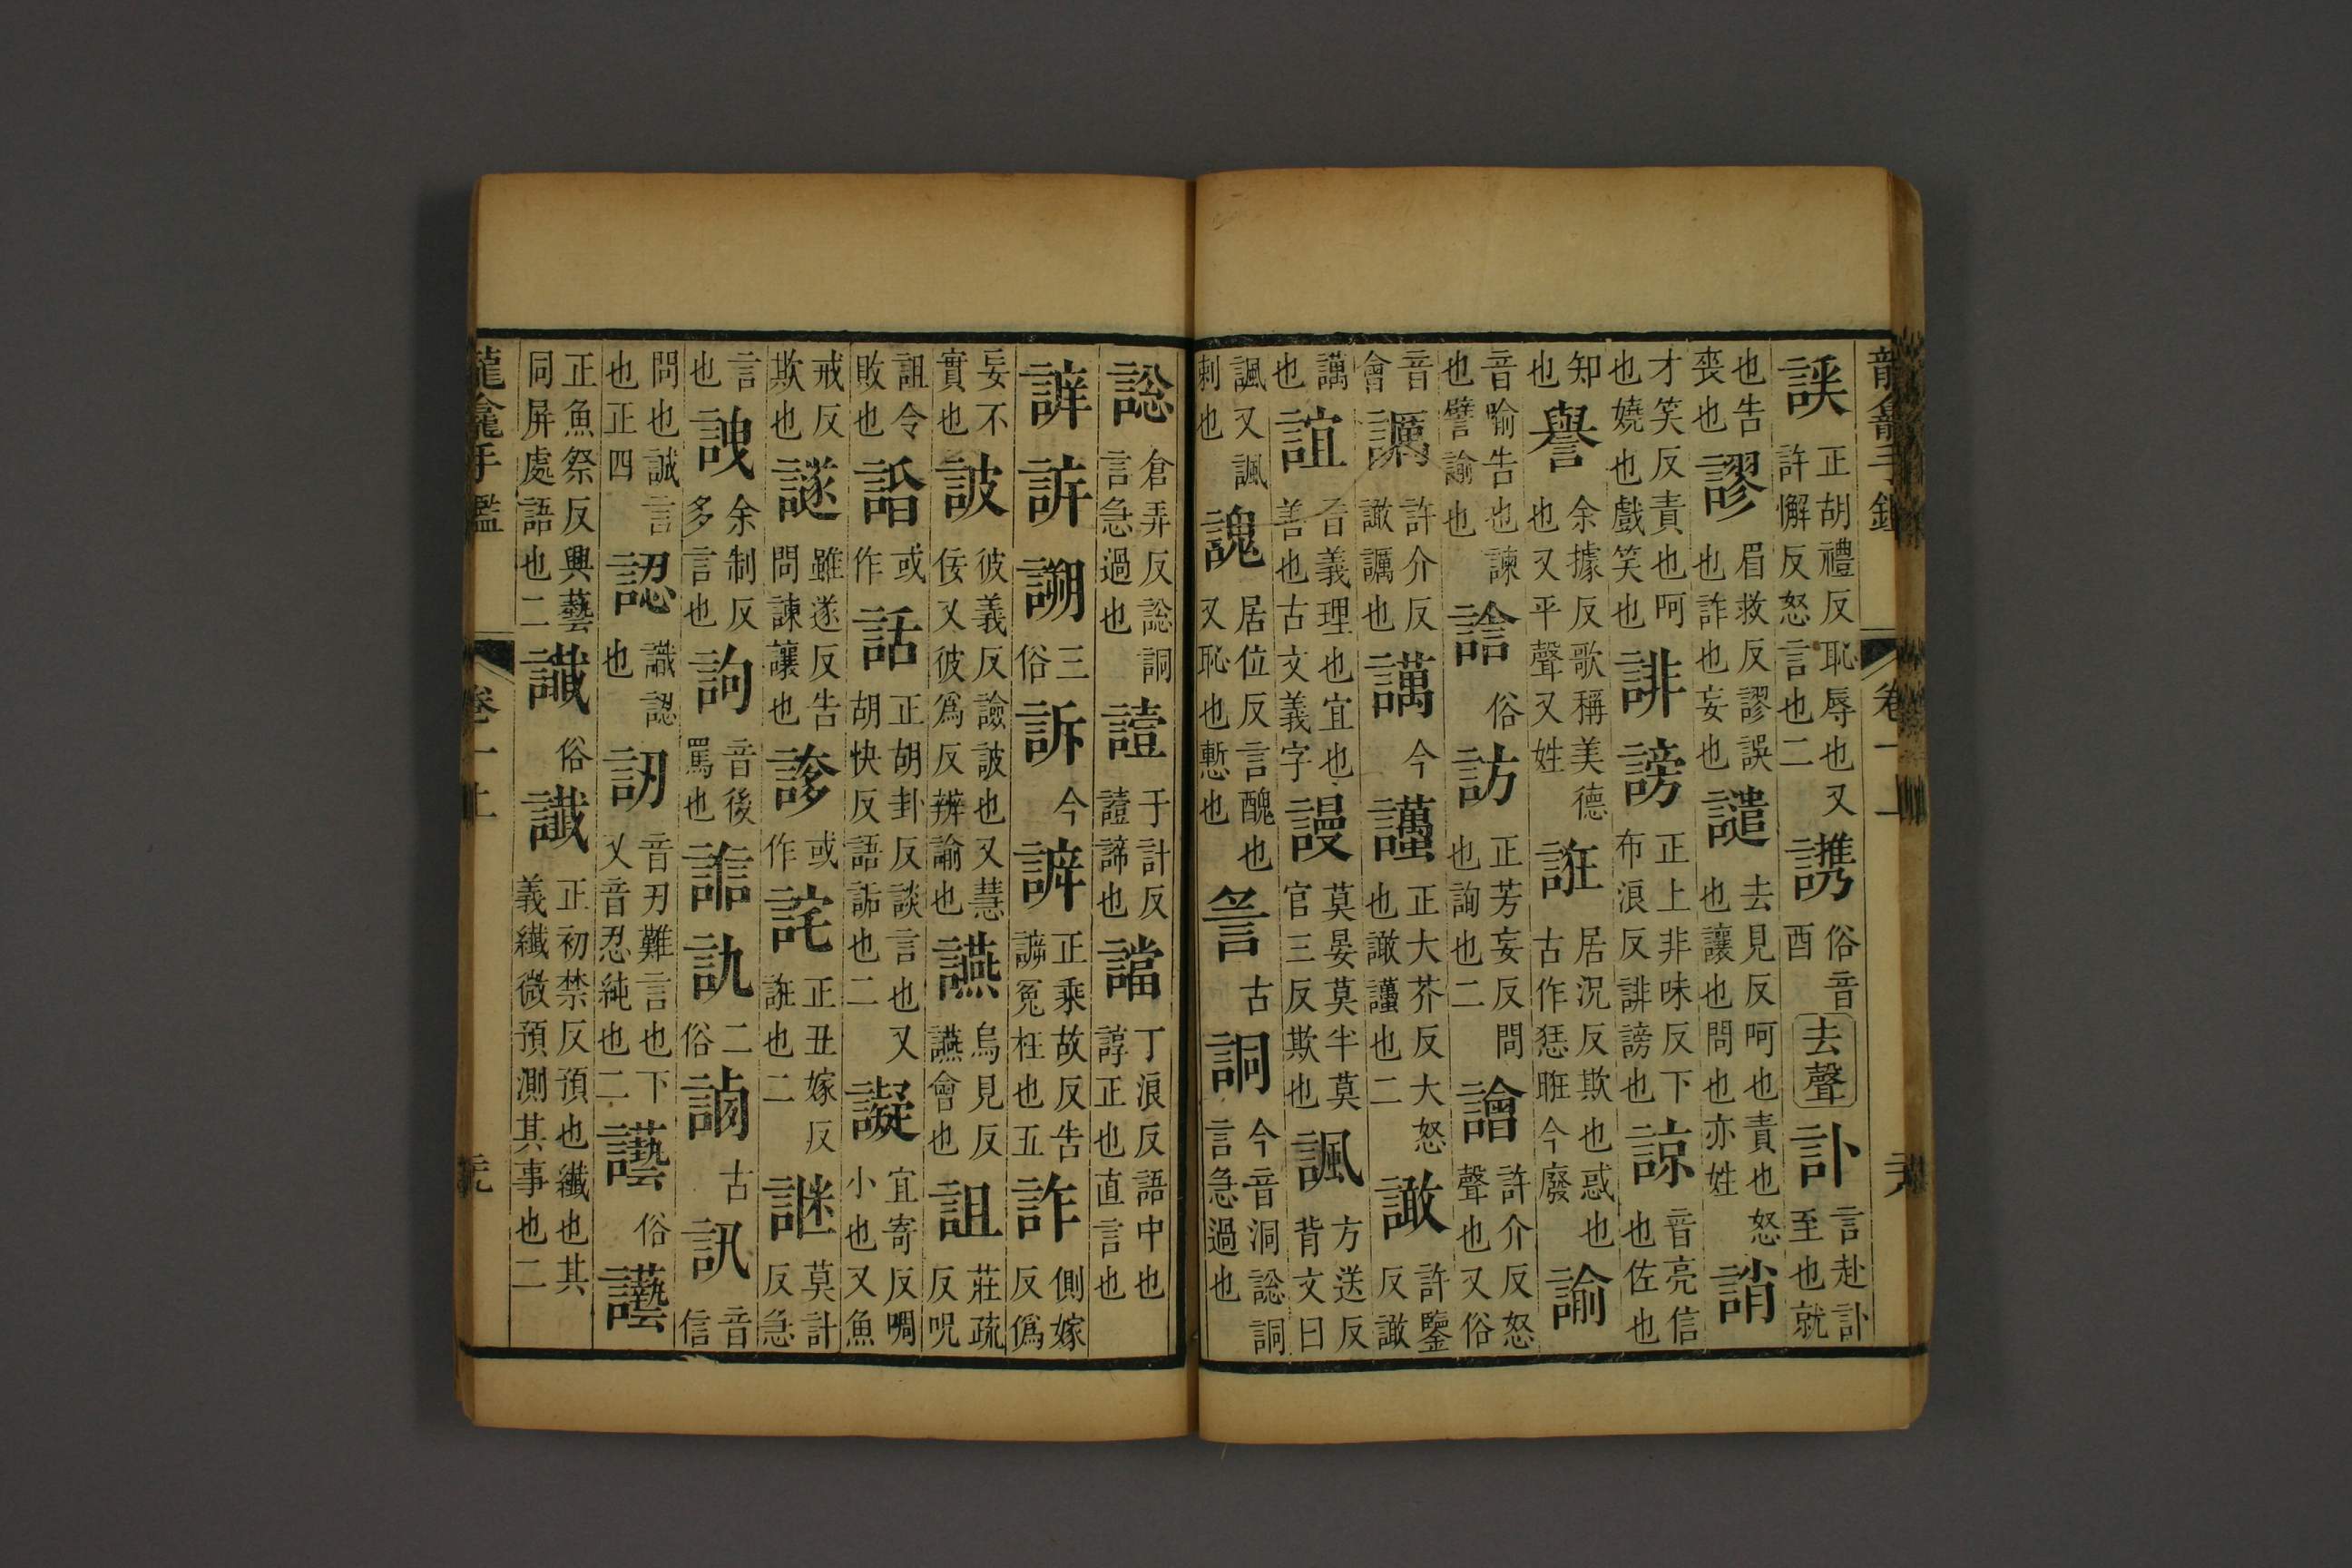 龍龕手鑑
卷一上
謑正胡禮反恥辱也又許懈反怒言也二𧫱俗音酉去聲訃言赴訃至也就
也告喪也謬眉救反謬誤也詐也妄也譴去見反呵也責也怒也讓也問也亦姓誚
才笑反責也呵也嬈也戲笑也誹謗正上非味反下布浪反誹謗也諒音亮信也佐也
知也譽余據反歌稱美德也又平聲又姓誑居況反欺也惑也古作惩誑今廢諭
音喻告也諫也譬諭也譮俗訪正芳妄反問也詢也二譮許介反怒聲也又俗
音會譪許介反譀譪也𧬫今𧭗正大芥反大怒也譀𧭗也二譀許鑒反譀
𧬫也誼音義理也宜也善也古文義字謾莫晏莫半莫官三反欺也諷方送反背文曰
諷又諷刺也謉居位反言醜也又恥也慙也詧古詷今音洞謥詷言急過也
謥倉弄反謥詷言急過也𧫦于計反𧫦諦也譡丁浪反語中也諄正也直言也
𧩯訴謝三俗訴今𧩯正乘故反告訴冤枉也五詐側嫁反僞
妄不實也詖彼義反譣詖也又慧佞又彼爲反辨諭也讌烏見反讌會也詛莊疏反呪
詛令敗也𧧸或作話正胡卦反談言也又胡快反語話也二譺宜寄反啁小也又魚
戒反欺也誶雖遂反告問諫讓也諺或作詫正丑嫁反誑也二謎莫計反急
言也詍余制反多言也詬音後罵也𧩻訙二俗𧨀古訊音信
問也誡言也正四認識認也訒音刃難言也下又音忍純也二讛俗讛
正魚祭反與藝同屏處語也二讖俗讖正初禁反預也纖也其義纖微預測其事也二
龍龕手鑑
卷一上